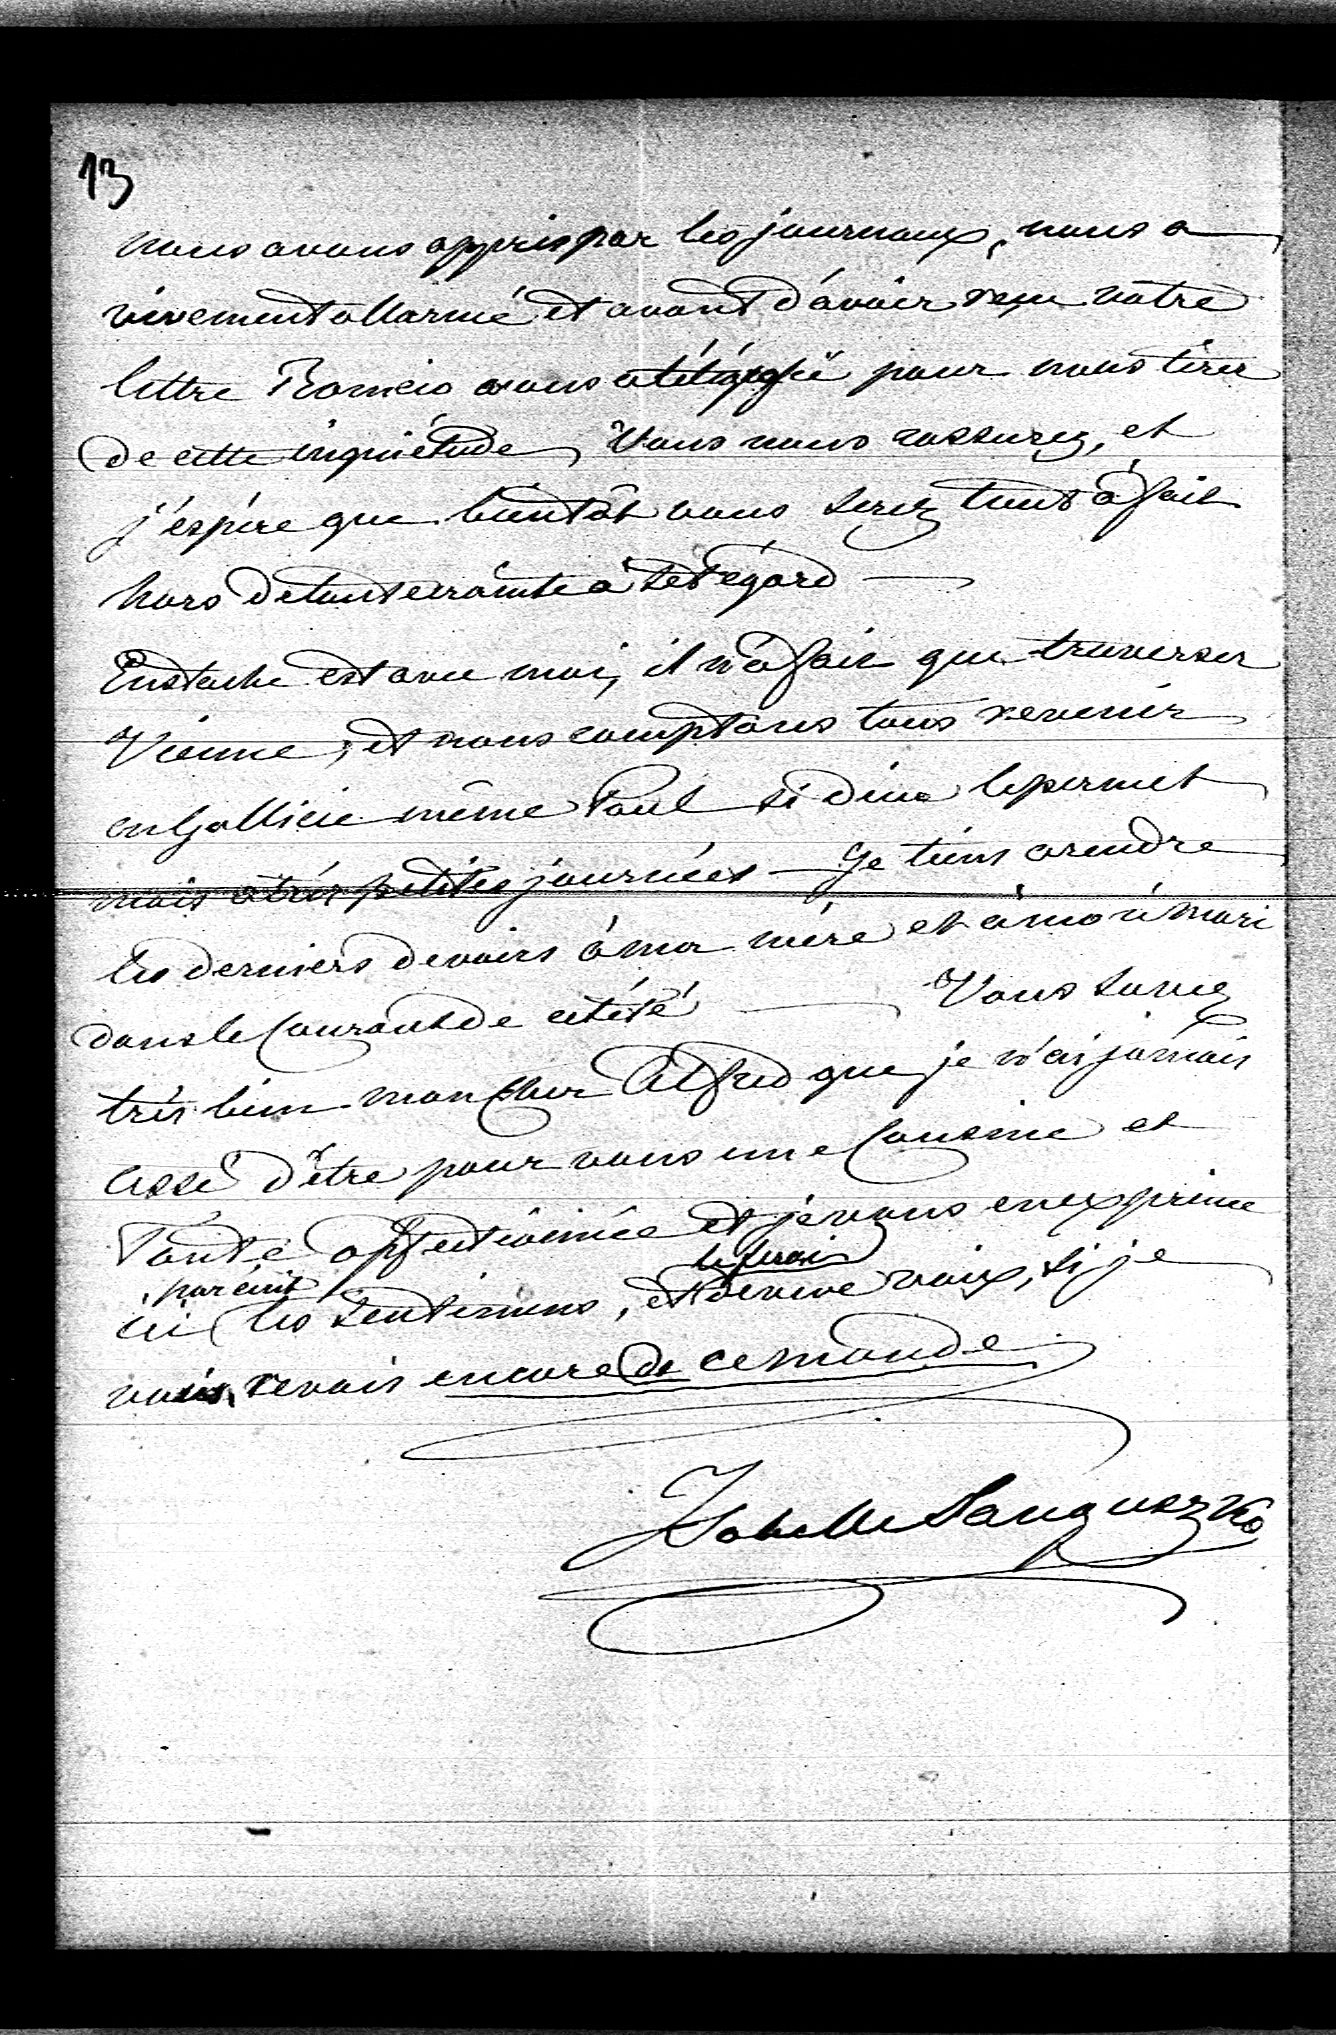 13
nous avons appris par les journaux, nous a
vivement allarmé et avant d'avoir reçu vôtre
lettre Roméio vous a télégrafié pour nous tirer
de cette inquiétude, Vous nous rassurez, et
j'espère que bientôt vous serez tout à fait
hors de toute crainte à cet égard —
Eustache est avec moi, il n'a fait que traverser
Vienne, et nous comptons tous revenir
en Gallicie même Paul si dieu le permet
mais a très petites journées — Je tiens a rendre
les derniers devoirs à ma mère et à mon mari
dans le Courant de cet été — Vous savez
très bien mon Cher Alfred que je n'ai jamais
cessé d'être pour vous une Cousine et
Tante affectionnée et je vous en exprime
par écrit le ferai
ici les sentimens, et de vive voix, si je
vous revois encore de ce monde
Isabelle Sanguszko